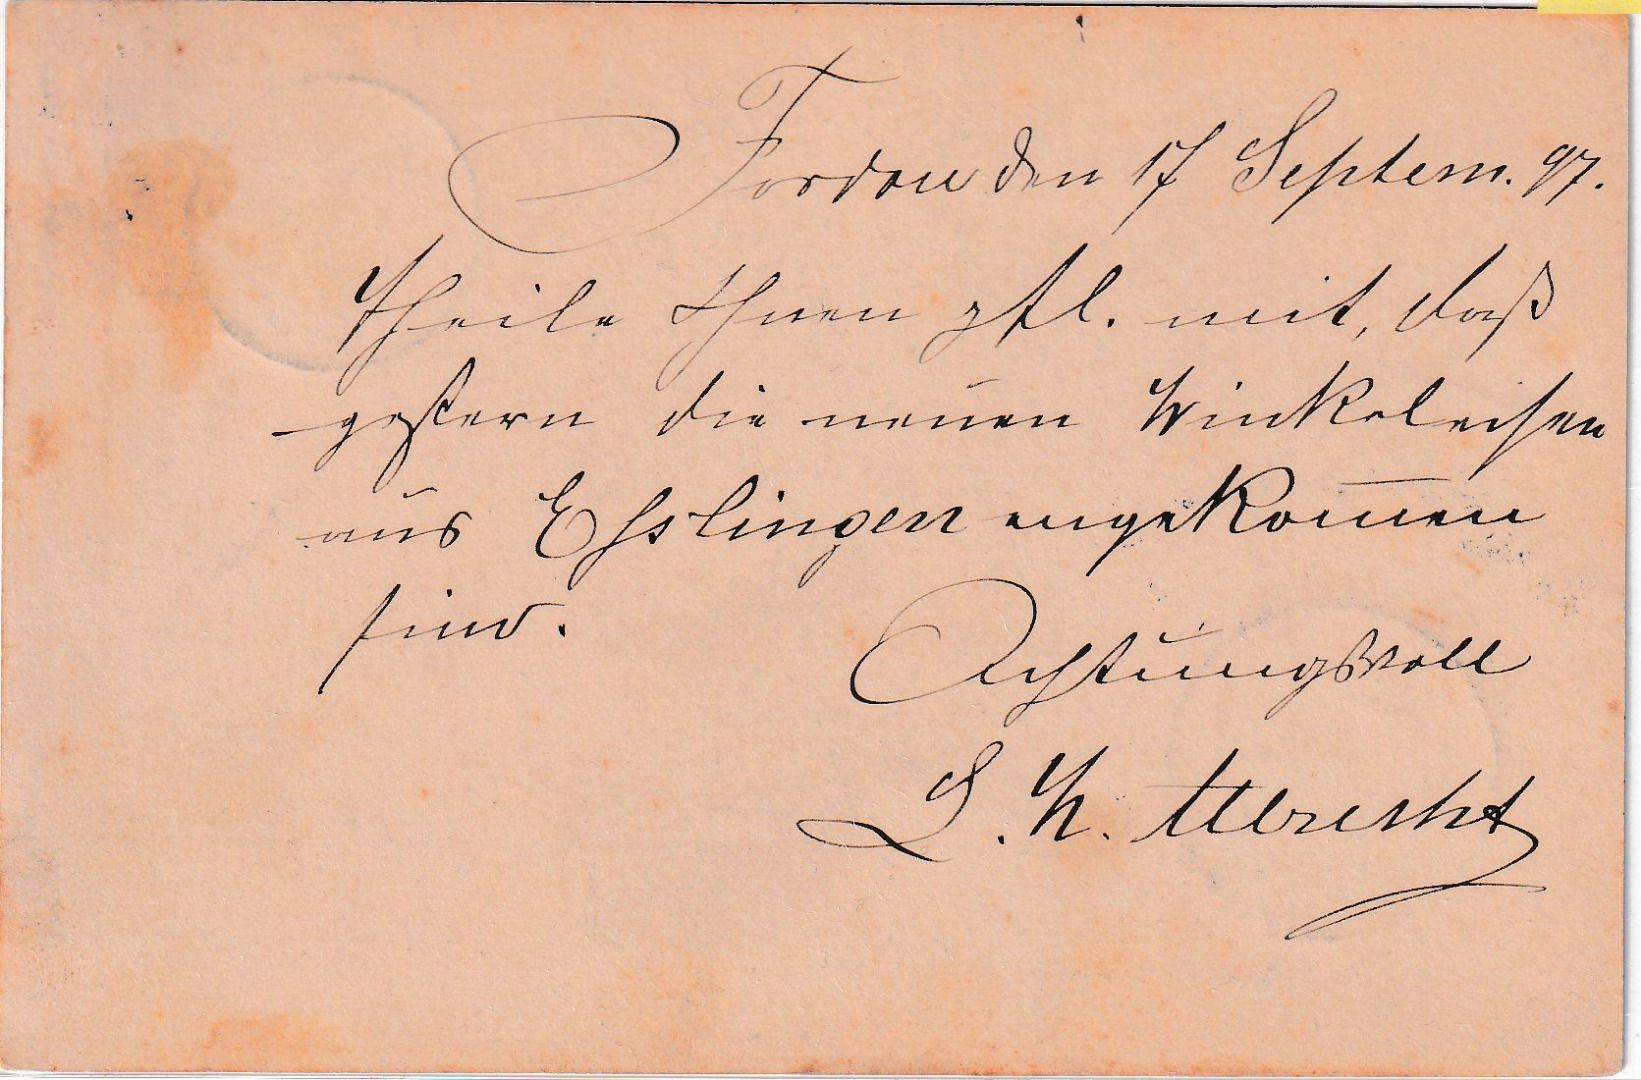 Fordon den 17 Septem. 97.
Theile Ihnen gfl. mit, daß
gestern die neuen Winkeleisen
aus Esslingen angekom̅en
sind.
Achtungsvoll
L. H. Albrecht